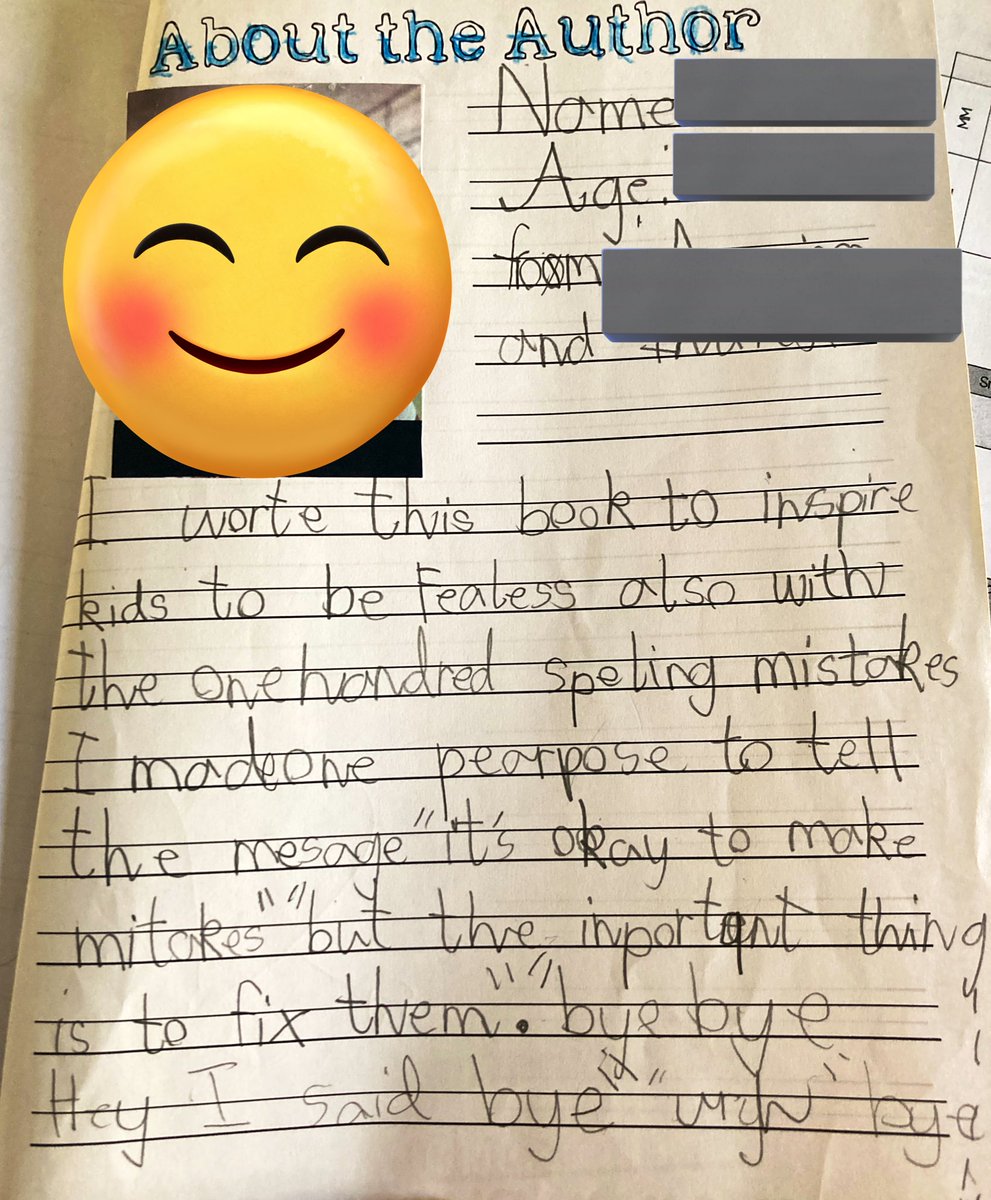 About the Author
Name
Age:
from
and
I worte this book to inspire
kids to be Fealess also with
the one hondred speling mistakes
I made one pearpose to tell
the mesage "it's okay to make
mitakes" "but the inportant thing
is to fix them." bye bye
Hey I said bye" bye
MM